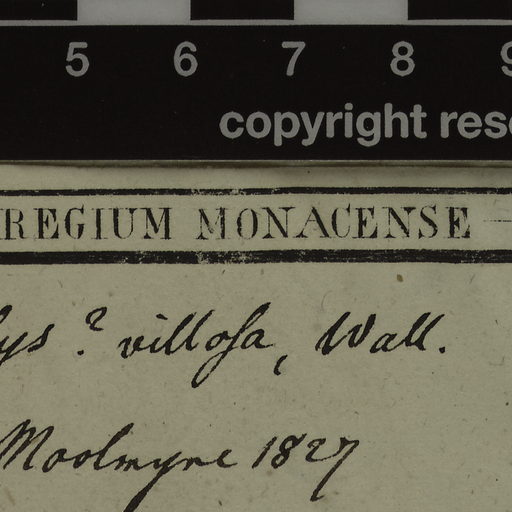 5 6 7 8 9
copyright rese
REGIUM MONACENSE
lys ? villosa, Wall.
Moolmyne 1827